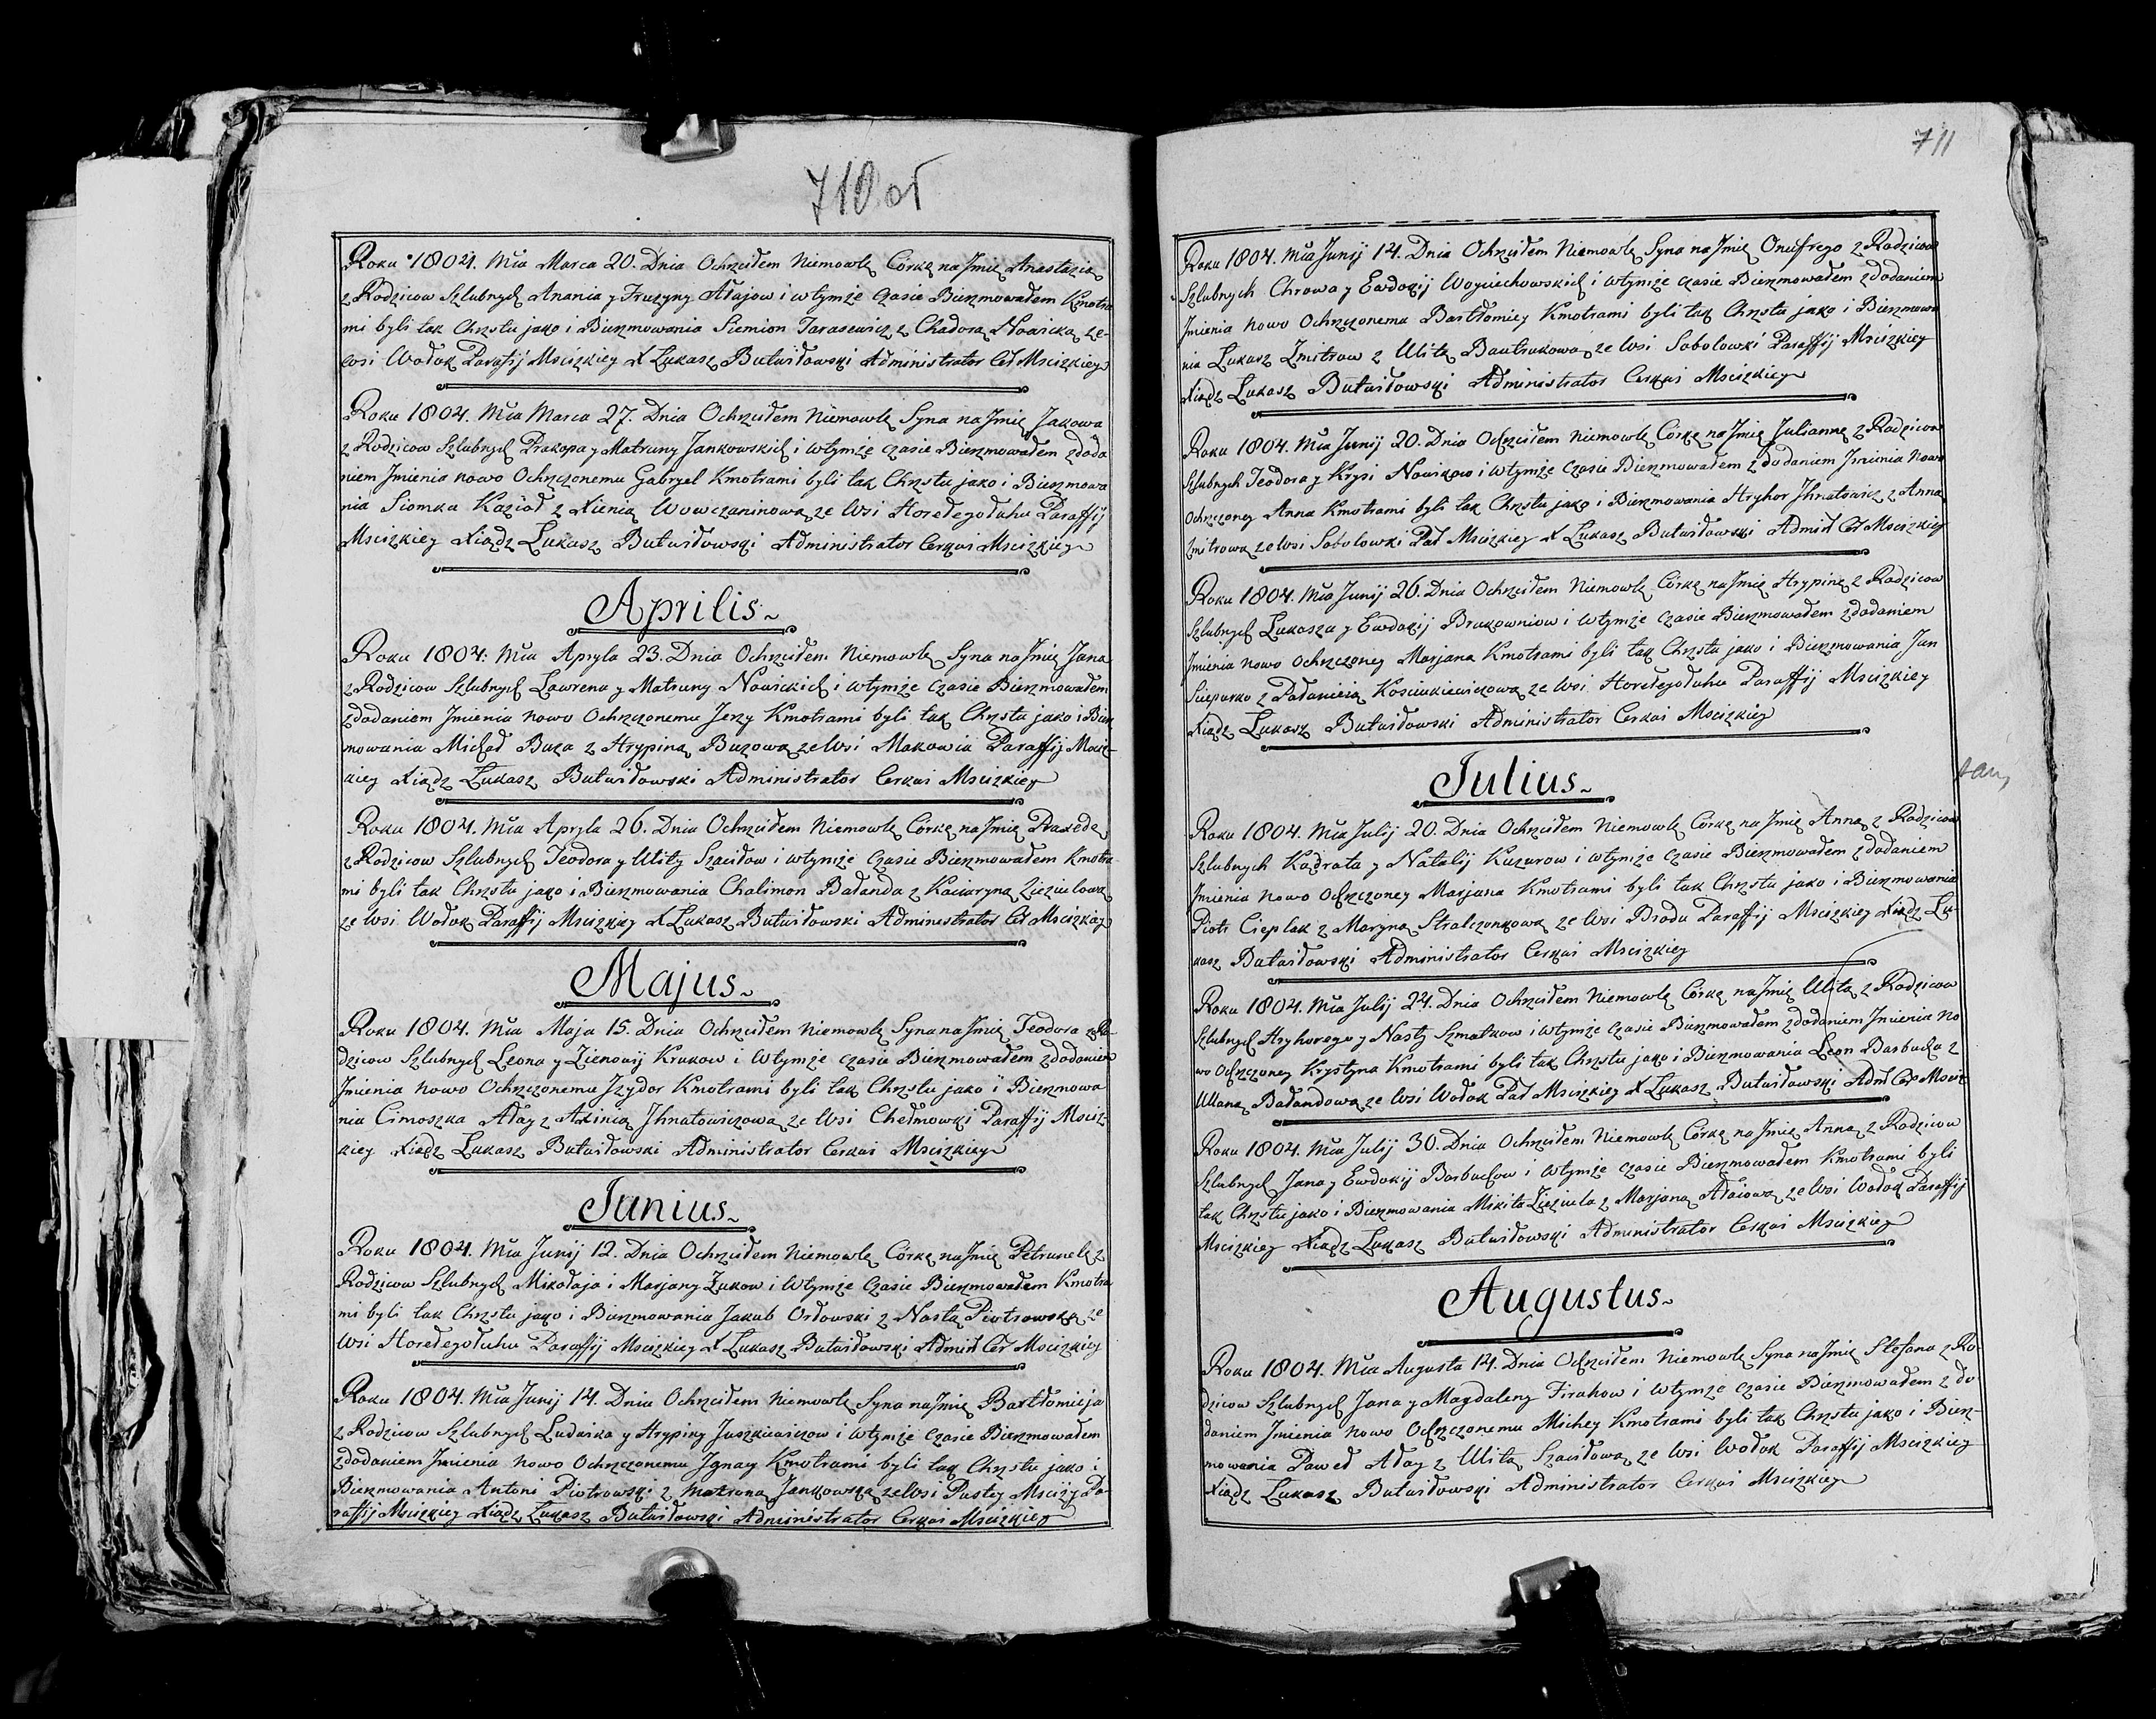 710 об
Roku 1804. Mca Marca 20. Dnia Ochrzciłem Niemowlę Córkę na Jmię Anastazią
z Rodzicow Szlubnych Anania y Fruzyny Ałajow i wtymże czasie Bierzmowałem Kmotra
mi byli tak Chrztu jako i Bierzmowania Siemion Tarasewicz z Chadorą Nowicką ze
wsi Wołok Paraffij Mscizkiey X Łukasz Butwiłowski Administrator Cer Mscizkiey
Roku 1804. Mca Marca 27. Dnia Ochrzciłem Niemowlę Syna na Jmię Jakowa
z Rodzicow Szlubnych Prakopa y Matruny Jankowskich i wtymże czasie Bierzmowałem z doda
niem Jmienia nowo Ochrzczonemu Gabryel Kmotrami byli tak Chrztu jako i Bierzmowa
nia Siomka Kazioł z Xienią Wowczaninową ze wsi Horełegołuhu Paraffij
Mscizkiey Xiądz Łukasz Butwiłowski Administrator Cerkwi Mscizkiey
Aprilis
Roku 1804. Mca Apryla 23. Dnia Ochrzciłem Niemowlę Syna na Jmię Jana
z Rodzicow Szlubnych Lawrena y Matruny Nowickich i wtymże czasie Bierzmowałem
z dodaniem Jmienia nowo Ochrzczonemu Jerzy Kmotrami byli tak Chrztu jako i Bierz
mowania Michał Buza z Hrypiną Buzową ze wsi Makowia Paraffij Msciz-
kiey Xiądz Łukasz Butwiłowski Administrator Cerkwi Mscizkiey
Roku 1804. Mca Apryla 26. Dnia Ochrzciłem Niemowlę Córkę na Jmię Praxedę
z Rodzicow Szlubnych Teodora y Ulity Szawiłow i wtymże czasie Bierzmowałem Kmotra
mi byli tak Chrztu jako i Bierzmowania Chalimon Bałanda z Kaciaryną Zieziulową
ze wsi Wołok Paraffij Mscizkiey X Łukasz Butwiłowski Administrator Cer Mscizkiey
Majus
Roku 1804. Mca Maja 15. Dnia Ochrzciłem Niemowlę Syna na Jmię Teodora z Ro-
dzicow Szlubnych Leona y Zienowij Krukow i wtymże czasie Bierzmowałem z dodaniem
Jmienia nowo Ochrzczonemu Jzydor Kmotrami byli tak Chrztu jako i Bierzmowa
nia Cimoszka Ałay z Axinią Jhnatowiczową ze wsi Chełmowki Paraffij Msciz-
kiey Xiądz Łukasz Butwiłowski Administrator Cerkwi Mscizkiey
Junius
Roku 1804. Mca Junij 12. Dnia Ochrzciłem Niemowlę Córkę na Jmię Petrunelę z
Rodzicow Szlubnych Mikołaja i Marjany Zukow i wtymże czasie Bierzmowałem Kmotra
mi byli tak Chrztu jako i Bierzmowania Jakub Orłowski z Nastą Piotrowską ze
wsi Horełegołuhu Paraffij Mscizkiey X Łukasz Butwiłowski Admin Cer Mscizkiey
Roku 1804. Mca Junij 14. Dnia Ochrzciłem Niemowlę Syna na Jmię Bartłomieja
z Rodzicow Szlubnych Ludwika y Hrypiny Juszkiewiczow i wtymże czasie Bierzmowałem
z dodaniem Jmienia nowo Ochrzczonemu Jgnacy Kmotrami byli tak Chrztu jako i
Bierzmowania Antoni Piotrowski z Matroną Jankowską ze wsi Pustey Mscizy Pa-
raffij Mscizkiey Xiądz Łukasz Butwiłowski Administrator Cerkwi Mscizkiey
711
Roku 1804. Mca Junij 14. Dnia Ochrzciłem Niemowlę Syna na Jmię Onufrego z Rodzicow
Szlubnych Chrowa y Ewdokij Woyciechowskich i wtymże czasie Bierzmowałem z dodaniem
Jmienia nowo Ochrzczonemu Bartłomiey Kmotrami byli tak Chrztu jako i Bierzmowa
nia Łukasz Zmitrow z Ulitą Bautrukową ze wsi Sobolowki Paraffij Mscizkiey
Xiądz Łukasz Butwiłowski Administrator Cerkwi Mscizkiey
Roku 1804. Mca Junij 20. Dnia Ochrzciłem Niemowlę Córkę na Jmię Juliannę z Rodzicow
Szlubnych Teodora y Krysi Nowikow i wtymże czasie Bierzmowałem z dodaniem Jmienia nowo
Ochrzczoney Anna Kmotrami byli tak Chrztu jako i Bierzmowania Hryhor Jhnatowicz z Anną
Zmitrową ze wsi Sobolowki Par Mscizkiey X Łukasz Butwiłowski Admin Cer Mscizkiey
Roku 1804. Mca Junij 26. Dnia Ochrzciłem Niemowlę Córkę na Jmię Hrypinę z Rodzicow
Szlubnych Łukasza y Ewdokij Brukowniow i wtymże czasie Bierzmowałem z dodaniem
Jmienia nowo Ochrzczoney Marjana Kmotrami byli tak Chrztu jako i Bierzmowania Jan
Sieparko z Pałanieią Kosciukiewiczową ze wsi Horełegołuhu Paraffij Mscizkiey
Xiądz Łukasz Butwiłowski Administrator Cerkwi Mscizkiey
Julius
Roku 1804. Mca Julij 20. Dnia Ochrzciłem Niemowlę Córkę na Jmię Annę z Rodzicow
Szlubnych Kądrata y Natalij Kuzurow i wtymże czasie Bierzmowałem z dodaniem
Jmienia nowo Ochrzczoney Marjana Kmotrami byli tak Chrztu jako i Bierzmowania
Piotr Cieplak z Maryną Stralczonkową ze wsi Brodu Paraffij Mscizkiey Xiądz Łu-
kasz Butwiłowski Administrator Cerkwi Mscizkiey
Roku 1804. Mca Julij 24. Dnia Ochrzciłem Niemowlę Córkę na Jmię Ulitę z Rodzicow
Szlubnych Hryhorego y Nasty Szmatkow i wtymże czasie Bierzmowałem z dodaniem Jmienia no
wo Ochrzczoney Krystyna Kmotrami byli tak Chrztu jako i Bierzmowania Leon Barbucha z
Ullaną Bałandową ze wsi Wołok Par Mscizkiey X Łukasz Butwiłowski Adm Cer Msciz
Roku 1804. Mca Julij 30. Dnia Ochrzciłem Niemowlę Córkę na Jmię Annę z Rodzicow
Szlubnych Jana y Ewdokij Barbuchow i wtymże czasie Bierzmowałem Kmotrami byli
tak Chrztu jako i Bierzmowania Mikita Ziezula z Marjaną Ałaiową ze wsi Wołok Paraffij
Mscizkiey Xiądz Łukasz Butwiłowski Administrator Cerkwi Mscizkiey
Augustus
Roku 1804. Mca Augusta 14. Dnia Ochrzciłem Niemowlę Syna na Jmię Stefana z Ro-
dzicow Szlubnych Jana y Magdaleny Firahow i wtymże czasie Bierzmowałem z do
daniem Jmienia nowo Ochrzczonemu Michey Kmotrami byli tak Chrztu jako i Bierz-
mowania Paweł Ałay z Ulitą Szawiłową ze wsi Wołok Paraffij Mscizkiey
Xiądz Łukasz Butwiłowski Administrator Cerkwi Mscizkiey